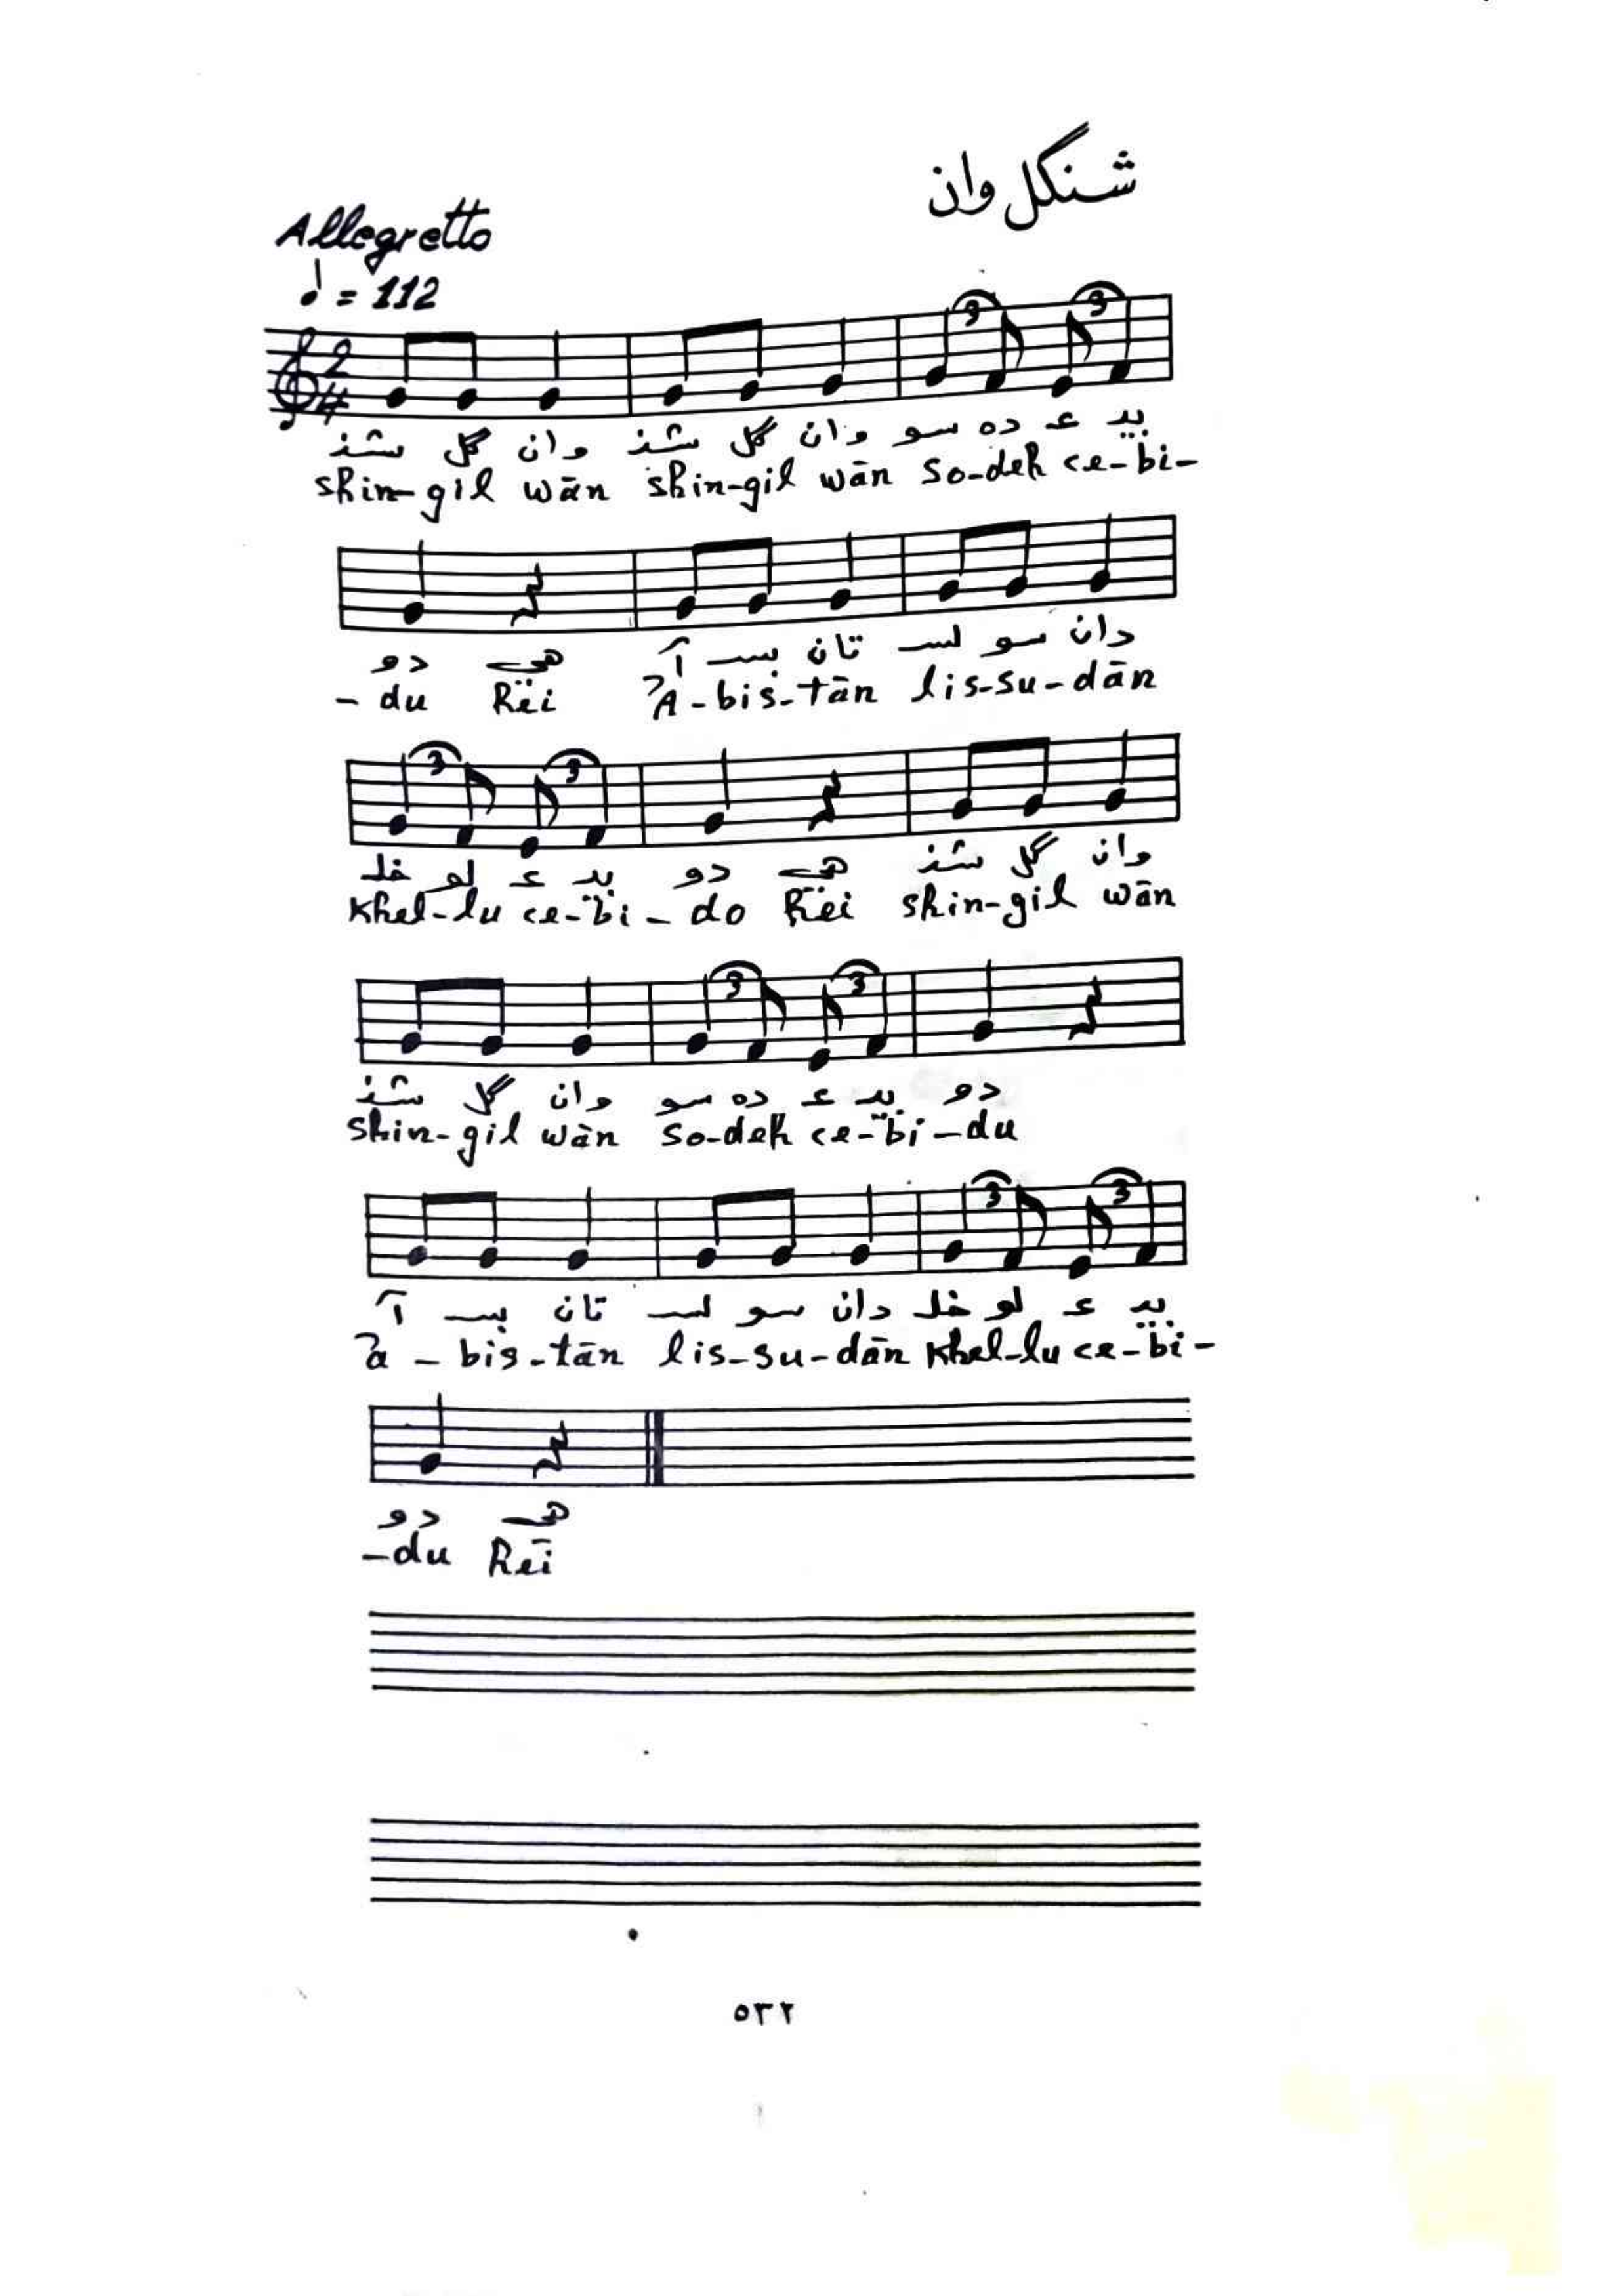 شنگل وان
Allegretto
♩ = 112
شنـ گل وان شنـ گل وان سو ده عـ بيـ
shin-gil wān shin-gil wān so-deh ce-bi-
دو هي آ بسـ تان لسـ سو دان
- du hëi ʔA-bis-tān lis-su-dān
خلـ لو عـ بيـ دو هي شنـ گل وان
khel-lu ce-bi-do hëi shin-gil wān
شنـ گل وان سو ده عـ بيـ دو
shin-gil wān so-deh ce-bi-du
آ بسـ تان لسـ سو دان خلـ لو عـ بيـ
ʔa-bis-tān lis-su-dān khel-lu ce-bi-
دو هي
-du hëi
٥٣٢